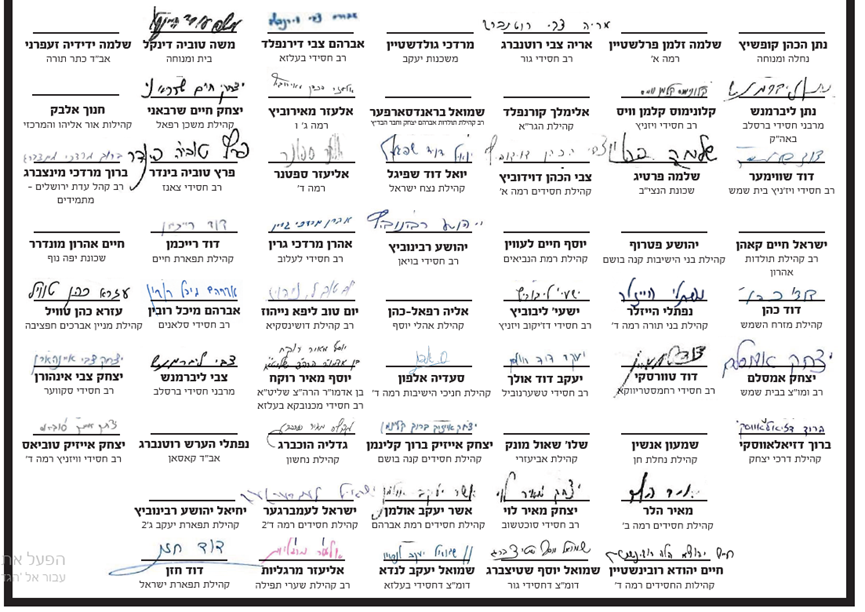 נתן הכהן קופשיץ
נחלה ומנוחה
שלמה זלמן פרלשטיין
רמה א'
אריה צבי רוטנברג
רב חסידי גור
מרדכי גולדשטיין
משכנות יעקב
אברהם צבי דירנפלד
רב חסידי בעלזא
משה טוביה דינקל
בית ומנוחה
שלמה ידידיה זעפרני
אב"ד כתר תורה
נתן ליברמנש
מרבני חסידי ברסלב
באה"ק
קלונימוס קלמן וויס
רב חסידי ויזניץ
אלימלך קורנפלד
קהילת הגר"א
שמואל בראנדסארפער
אלעזר מאירוביץ
רמה ג' ו
יצחק חיים שרבאני
קהילת משכן רפאל
חנוך אלבק
קהילות אור אליהו והמרכזי
דוד שווימער
רב חסידי ויז'ניץ בית שמש
שלמה פרטיג
שכונת הנצי"ב
צבי הכהן דוידוביץ
קהילת חסידים רמה א'
יואל דוד שפיגל
קהילת נצח ישראל
אליעזר ספטנר
רמה ד'
פרץ טוביה בינדר
רב חסידי צאנז
ברוך מרדכי מינצברג
רב קהל עדת ירושלים -
מתמידים
ישראל חיים קאהן
רב קהילת תולדות
אהרון
יהושע פטרוף
קהילת בני הישיבות קנה בושם
יוסף חיים לעווין
קהילת רמת הנביאים
יהושע רבינוביץ
רב חסידי בויאן
אהרן מרדכי גרין
רב חסידי לעלוב
דוד רייכמן
קהילת תפארת חיים
חיים אהרון מונדרר
שכונת יפה נוף
דוד כהן
קהילת מזרח השמש
נפתלי הייזלר
קהילת בני תורה רמה ד'
ישעי' ליבוביץ
רב חסידי דז'יקוב ויזניץ
אליה רפאל-כהן
קהילת אהלי יוסף
יום טוב ליפא נייהוז
רב קהילת דושינסקיא
אברהם מיכל רובין
רב חסידי סלאנים
עזרא כהן טוויל
קהילת מניין אברכים חפציבה
יצחק אמסלם
רב ומו"צ בבית שמש
דוד טוורסקי
רב חסידי רחמסטריווקא
יעקב דוד אולך
רב חסידי טשערנוביל
סעדיה אלפון
קהילת חניכי הישיבות רמה ד'
יוסף מאיר רוקח
בן אדמו"ר הרה"צ שליט"א
רב חסידי מכנובקא בעלזא
צבי ליברמנש
מרבני חסידי ברסלב
יצחק צבי אינהורן
רב חסידי סקווער
ברוך דזיאלאווסקי
קהילת דרכי יצחק
שמעון אנשין
קהילת נחלת חן
שלו' שאול מונק
קהילת אביעזרי
יצחק אייזיק ברוך קלינמן
קהילת חסידים קנה בושם
גדליה הוכברג
קהילת נחשון
נפתלי הערש רוטנברג
אב"ד קאסאן
יצחק אייזיק טוביאס
רב חסידי וויזניץ רמה ד'
מאיר הלר
קהילת חסידים רמה ב'
יצחק מאיר לוי
רב חסידי סוכטשוב
אשר יעקב אולמן
קהילת חסידים רמת אברהם
ישראל לעמברגער
קהילת חסידים רמה ד2'
יחיאל יהושע רבינוביץ
קהילת תפארת יעקב ג2'
חיים יהודא רובינשטיין
קהילות החסידים רמה ד'
שמואל יוסף שטיצברג
דומ"צ דחסידי גור
שמואל יעקב לנדא
דומ"צ דחסידי בעלזא
אליעזר מרגליות
רב קהילת שערי תפילה
דוד חזן
קהילת תפארת ישראל
הפעל את
עבור אל 'הגד